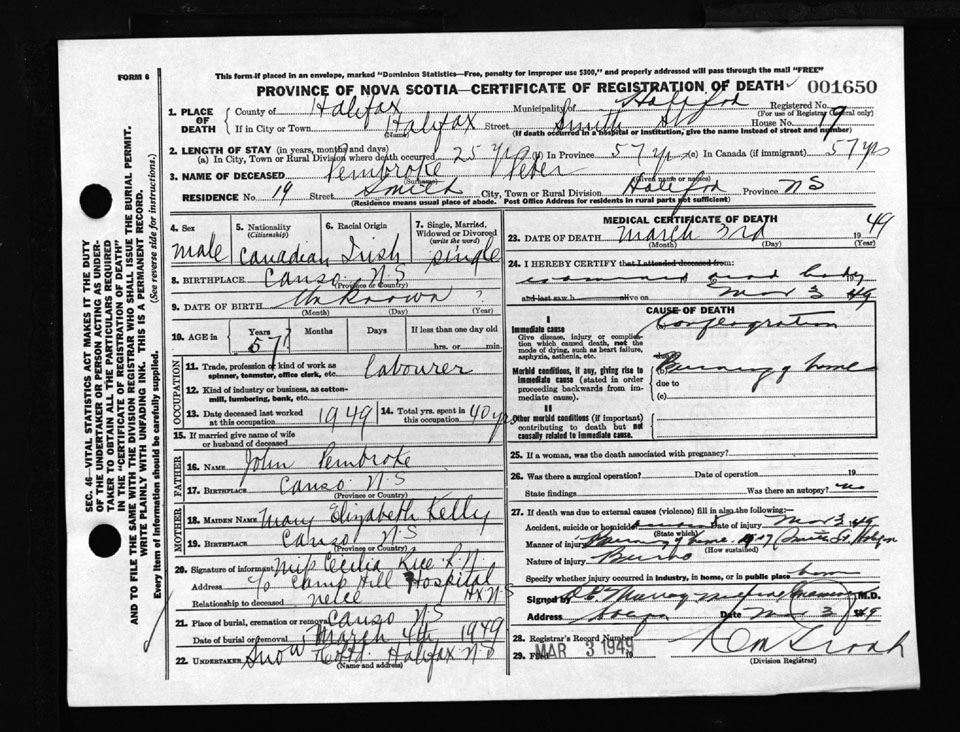 FORM 6
This form if placed in an envelope, marked "Dominion Statistics—Free, penalty for improper use $300," and properly addressed will pass through the mail "FREE"
PROVINCE OF NOVA SCOTIA—CERTIFICATE OF REGISTRATION OF DEATH 001650
1. PLACE OF DEATH County of Halifax Municipality of Halifax Registered No. (For use of Registrar General only)
If in City or Town Halifax (Name) Street Smith St House No. 19
(If death occurred in a hospital or institution, give the name instead of street and number)
2. LENGTH OF STAY (in years, months and days)
(a) In City, Town or Rural Division where death occurred 25 yrs (b) In Province 57 yrs (c) In Canada (if immigrant) 57 yrs
3. NAME OF DECEASED Pembroke Peter
(Surname) (Given name or names)
RESIDENCE No. 19 Street Smith City, Town or Rural Division Halifax Province N S
(Residence means usual place of abode. Post Office Address for residents in rural parts not sufficient)
4. Sex male
5. Nationality (Citizenship) Canadian
6. Racial Origin Irish
7. Single, Married, Widowed or Divorced (write the word) single
8. BIRTHPLACE Canso N.S
(Province or Country)
9. DATE OF BIRTH Unknown ?
(Month) (Day) (Year)
10. AGE in Years Months Days If less than one day old
57 ? hrs. or min.
OCCUPATION
11. Trade, profession or kind of work as spinner, teamster, office clerk, etc. Labourer
12. Kind of industry or business, as cotton-mill, lumbering, bank, etc.
13. Date deceased last worked at this occupation 1949
14. Total yrs. spent in this occupation 40 yrs
15. If married give name of wife or husband of deceased
FATHER
16. NAME John Pembroke
17. BIRTHPLACE Canso N.S
(Province or Country)
MOTHER
18. MAIDEN NAME Mary Elizabeth Kelly
19. BIRTHPLACE Canso N.S
(Province or Country)
20. Signature of informant Miss Cecilia Rice R.N
Address c/o Camp Hill Hospital Hx N S
Relationship to deceased neice
21. Place of burial, cremation or removal Canso N S
Date of burial or removal March 4th 1949
22. UNDERTAKER Snow Co Ltd. Halifax N-S
(Name and address)
MEDICAL CERTIFICATE OF DEATH
23. DATE OF DEATH March 3rd 1949
(Month) (Day) (Year)
24. I HEREBY CERTIFY that I attended deceased from:
examined dead body 19
and last saw h alive on Mar 3 1949
CAUSE OF DEATH
I
Immediate cause
Give disease, injury or complication which caused death, not the mode of dying, such as heart failure, asphyxia, asthenia, etc.
Conflagration
Morbid conditions, if any, giving rise to immediate cause (stated in order proceeding backwards from immediate cause).
(b) Burning of home
due to
(c)
II
Other morbid conditions (if important) contributing to death but not causally related to immediate cause.
25. If a woman, was the death associated with pregnancy?
26. Was there a surgical operation? Date of operation 19
State findings Was there an autopsy? no
27. If death was due to external causes (violence) fill in also the following:
Accident, suicide or homicide? Date of injury Mar 3 1949
(State which)
Manner of injury Burning of home Smith St Halifax
(How sustained)
Nature of injury Burns
Specify whether injury occurred in industry, in home, or in public place home
Signed by Murray Medical Examiner M.D.
Address Halifax Date Mar 3 1949
28. Registrar's Record Number
29. Filed MAR 3 1949 19
(Division Registrar)
SEC. 46—VITAL STATISTICS ACT MAKES IT THE DUTY
OF THE UNDERTAKER OR PERSON ACTING AS UNDERTAKER TO OBTAIN ALL THE PARTICULARS REQUIRED
IN THE "CERTIFICATE OF REGISTRATION OF DEATH"
AND TO FILE THE SAME WITH THE DIVISION REGISTRAR WHO SHALL ISSUE THE BURIAL PERMIT.
WRITE PLAINLY WITH UNFADING INK. THIS IS A PERMANENT RECORD.
Every item of information should be carefully supplied. (See reverse side for instructions.)